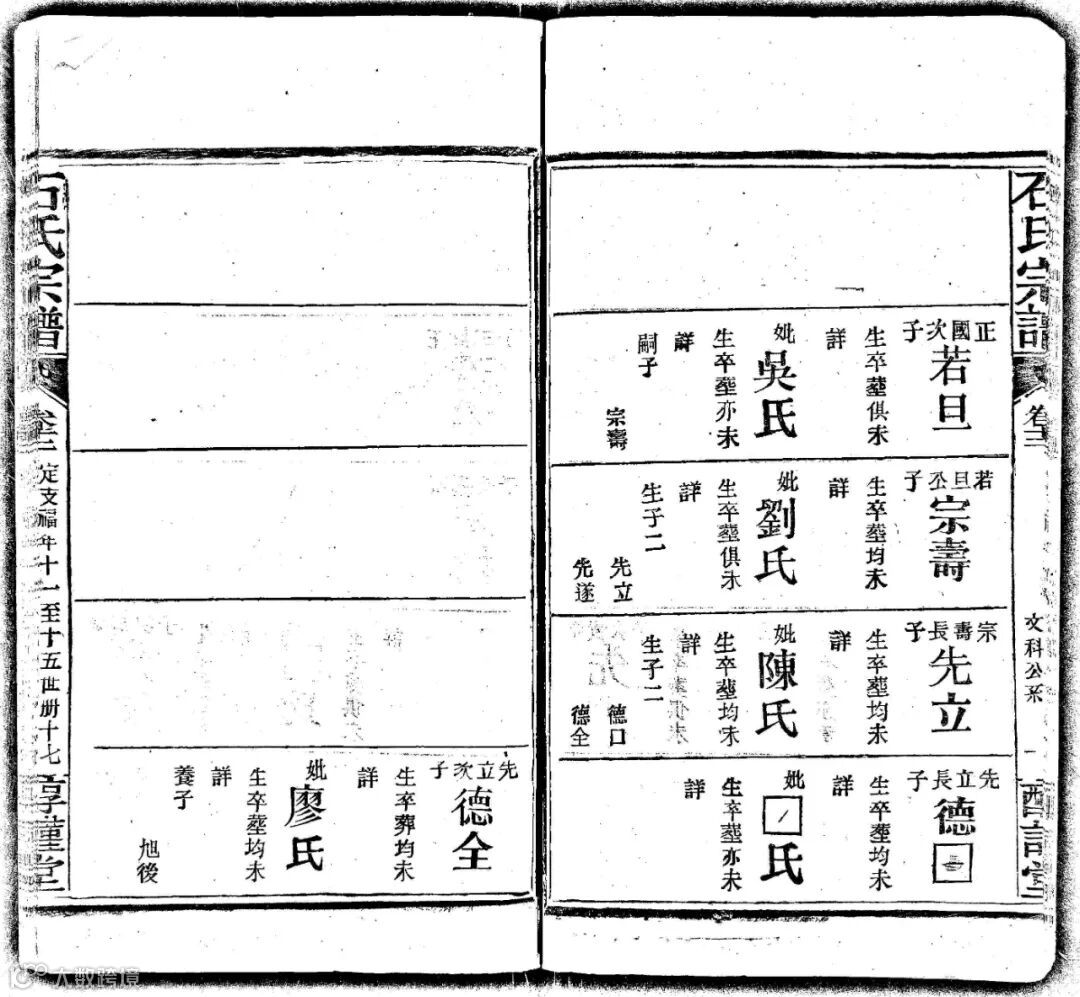 石氏宗譜
卷三
文科公系
一
正國次子
若旦
生卒塟俱未
詳
妣
吳氏
生卒塟亦未
詳
嗣子
宗壽
若旦公子
宗壽
生卒塟均未
詳
妣
劉氏
生卒塟俱未
詳
生子二
先立
先遂
宗壽長子
先立
生卒塟均未
詳
妣
陳氏
生卒塟均未
詳
生子二
德口
德全
先立長子
德
生卒塟均未
詳
妣
氏
生卒塟亦未
詳
先立次子
德全
生卒葬均未
詳
妣
廖氏
生卒塟均未
詳
養子
旭後
石氏宗譜
卷三
定支福年十一至十五世册十七
大数跨境